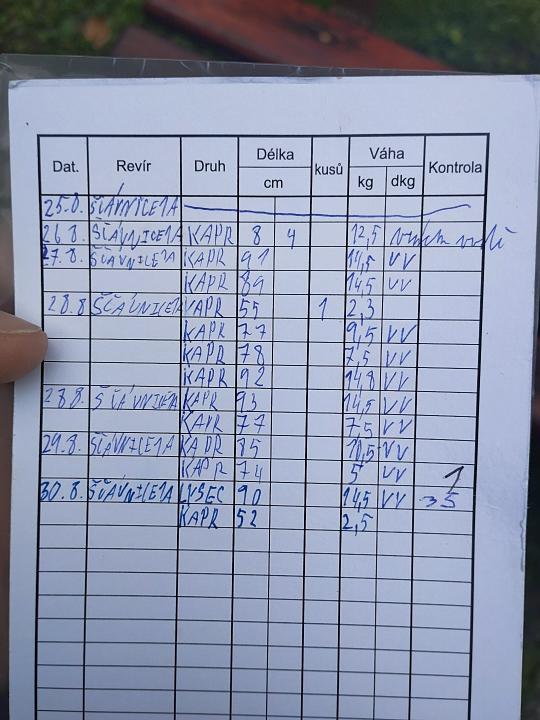 Dat. Revír Druh Délka cm kusů Váha kg dkg Kontrola
25.8. ŠČÁVNICE1A
26.8. ŠČÁVNICE1A KAPR 84 12,5
27.8. ŠČÁVNICE1A KAPR 91 14,5 VV
KAPR 89 14,5 VV
28.8 ŠČÁVNICE1A KAPR 55 1 2,3
KAPR 77 9,5 VV
KAPR 78 7,5 VV
KAPR 92 14,8 VV
28.8. ŠČÁVNICE1A KAPR 93 14,5 VV
KAPR 77 7,5 VV
29.8. ŠČÁVNICE1A KAPR 85 11,5 VV
KAPR 74 5 VV
30.8. ŠČÁVNICE1A LYSEC 90 14,5 VV
KAPR 52 2,5